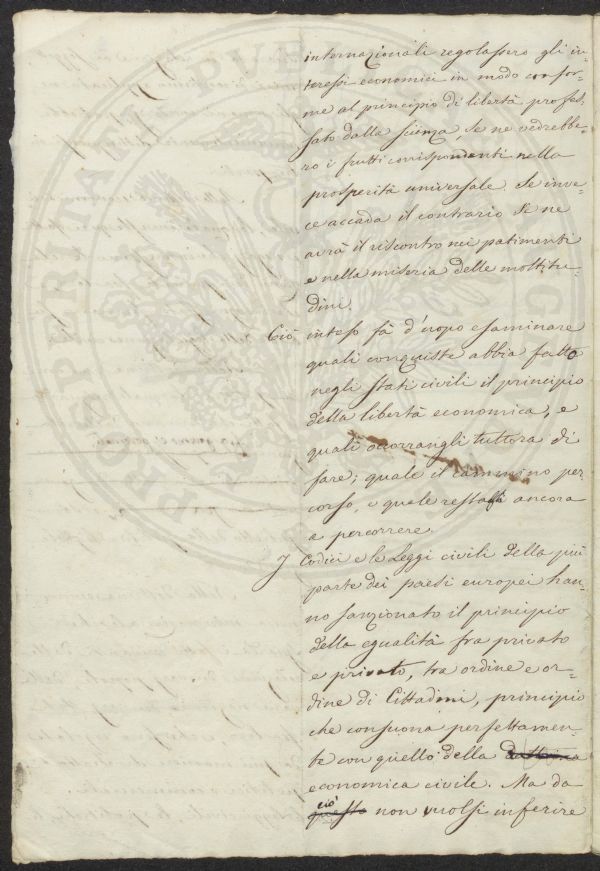 internazionali regolassero gli in-
teressi economici in modo confor-
me al principio di libertà profes-
sato dalla scienza, se ne vedrebbe-
ro i frutti corrispondenti nella
prosperità universale. Se inve-
ce accada il contrario se ne
avrà il riscontro nei patimenti
e nella miseria delle moltitu-
dini.
Ciò inteso fà d'uopo esaminare
quali conquiste abbia fatto
negli stati civili il principio
della libertà economica, e
quali occorrangli tuttora di
fare; quale il cammino per-
corso, e quale resta ancora
a percorrere.
I Codici e le Leggi civili della più
parte dei paesi europei han-
no sanzionato il principio
della egualità fra privato
e privato, tra ordine e or-
dine di Cittadini, principio
che consuona perfettamen-
te con quello della dottrina
economica civile. Ma da
ciò
questo non vuolsi inferire